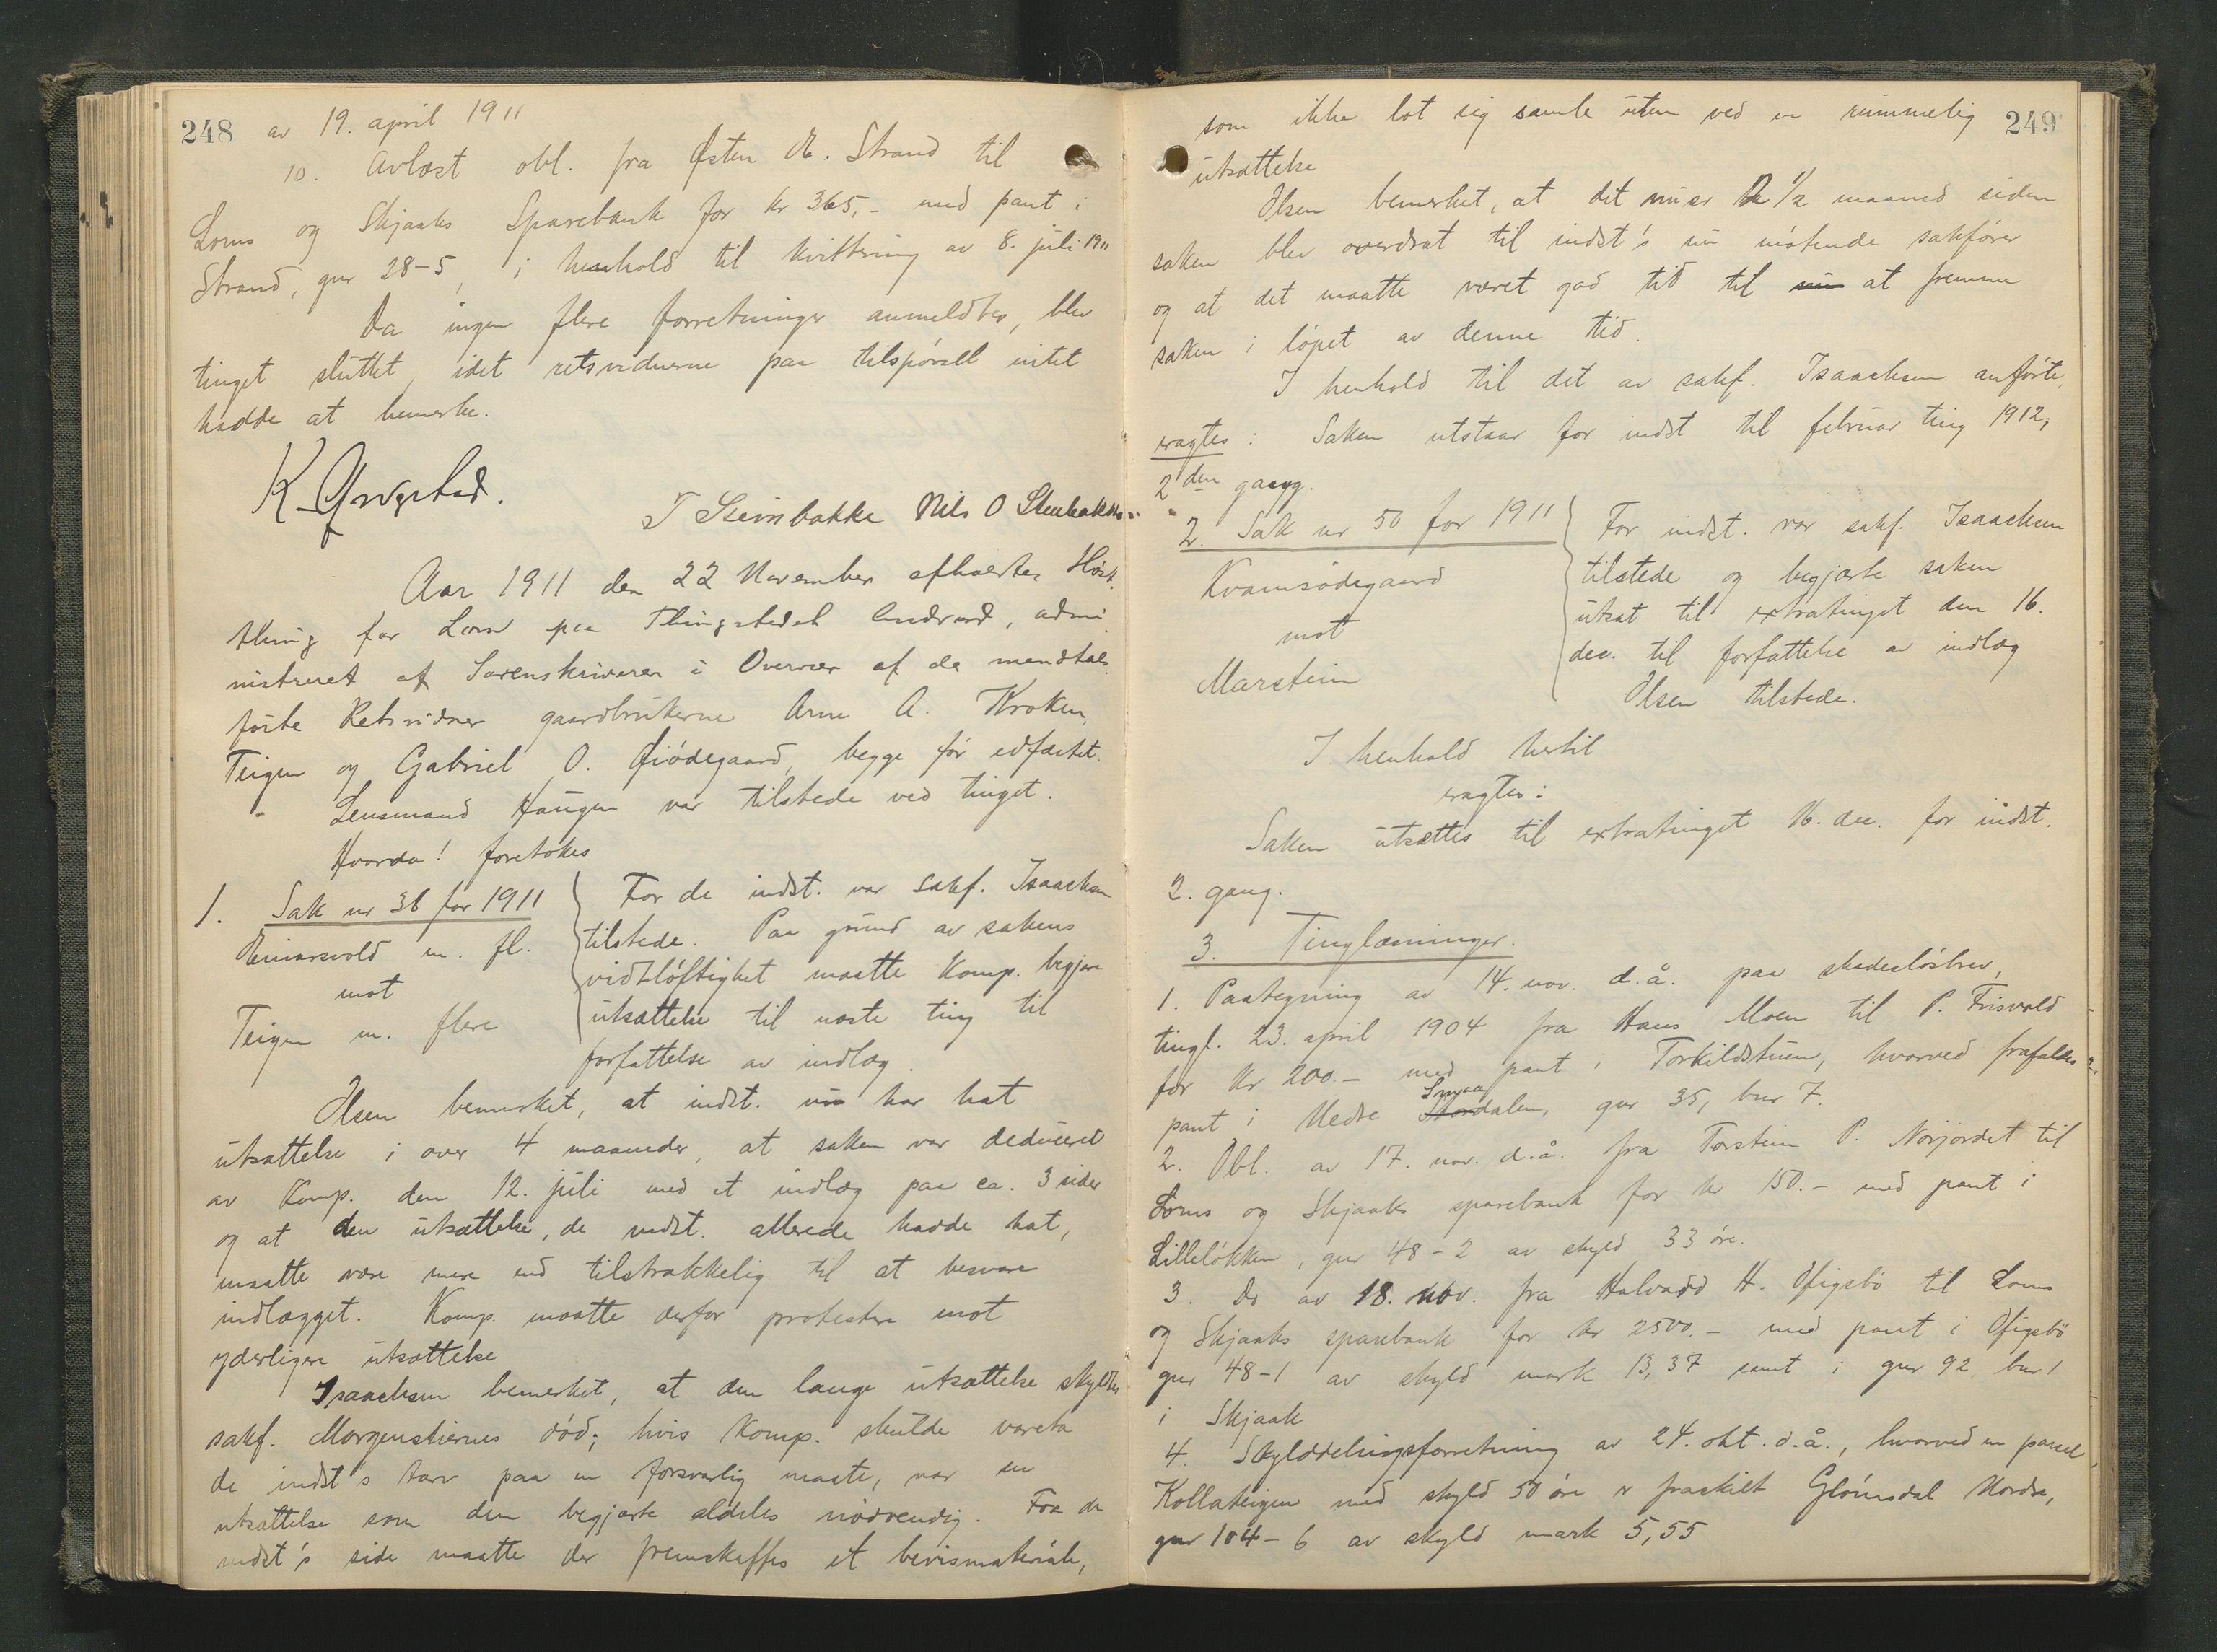 248 av 19. april 1911
10. Avlæst obl. fra Østen A. Strand til
Loms og Skjaaks Sparebank for kr 365,- med pant i
Strand, gnr 28-5, i henhold til kvittering av 8. juli 1911
Da ingen flere forretninger anmeldtes, blev
tinget sluttet, idet retsvidnerne paa tilspørsel intet
hadde at bemerke.
K.
T Steinbakke Nils O
Aar 1911 den 22 November afholdtes Høst
thing for Lom paa Thingstedet Andvord, admi
nistreret af Sorenskriveren i Overvær af de mandtals
førte Retsvidner gaardbrukerne Arne A. Kroken,
Teigen og Gabriel O. Øiødegaard, begge før edfæstet.
Lensmand Haugen var tilstede ved tinget.
Hvorda! foretokes
1. Sak nr 36 for 1911
Einarsvold m. fl.
mot
Teigen m. flere
For de indst. var sakf. Isaachsen
tilstede. Paa grund av sakens
vidtløftighet maatte Komp. begjære
utsættelse til næste ting til
forfattelse av indlæg.
Olsen bemerket, at indst. nu har hat
utsættelse i over 4 maaneder, at saken var deduceret
av Komp. den 12. juli med et indlæg paa ca. 3 sider
og at den utsættelse, de indst. allerede hadde hat,
maatte være mere end tilstrækkelig til at besvare
indlægget. Komp. maatte derfor protestere mot
yderligere utsættelse
Isaachsen bemerket, at den lange utsættelse skyldtes
sakf. Morgenstiernes død; hvis Komp. skulde vareta
de indst's tarv paa en forsvarlig maate, var en
utsættelse som den begjærte aldeles nødvendig. Fra de
indst's side maatte der fremskaffes et bevismateriale,
249
som ikke lot sig samle uten ved en rummelig
utsættelse
Olsen bemerket, at det nu er 2 1/2 maaned siden
saken blev overdrat til indst's nu møtende sakfører
og at det maatte været god tid til nu at fremme
saken i løpet av denne tid.
I henhold til det av sakf. Isaachsen anførte,
eragtes: Saken utstaar for indst til februar ting 1912,
2den gang.
2. Sak nr 50 for 1911
Kvamsødegaard
mot
Marstein
For indst. var sakf. Isaachsen
tilstede og begjærte saken
utsat til extratinget den 16.
dec. til forfattelse av indlæg
Olsen tilstede.
I henhold hertil
eragtes:
Saken utsættes til extratinget 16. dec. for indst.
2. gang.
3. Tinglæsninger.
1. Paategning av 14. nov. d.å. paa skadesløsbrev,
tingl. 23. april 1904 fra Hans Moen til P. Frisvold
for kr 200.- med pant i Torkildstuen, hvorved frafaldes
pant i Nedre Smaadalen, gnr 35, bnr 7.
2. Obl. av 17. nov. d.å. fra Torstein P. Nørjordet til
Loms og Skjaaks sparebank for kr 150.- med pant i
Lilleløkken, gnr 48-2 av skyld 33 øre.
3. Do av 18. nov. fra Halvard H. Ofigsbø til Loms
og Skjaaks sparebank for kr 2500.- med pant i Ofigsbø
gnr 48-1 av skyld mark 13,37 samt i gnr 92, bnr 1
i Skjaak
4. Skylddelingsforretning av 24. okt. d.å., hvorved en parcel
Kollateigen med skyld 50 øre er fraskilt Glømsdal Nordre,
gnr 104-6 av skyld mark 5,55